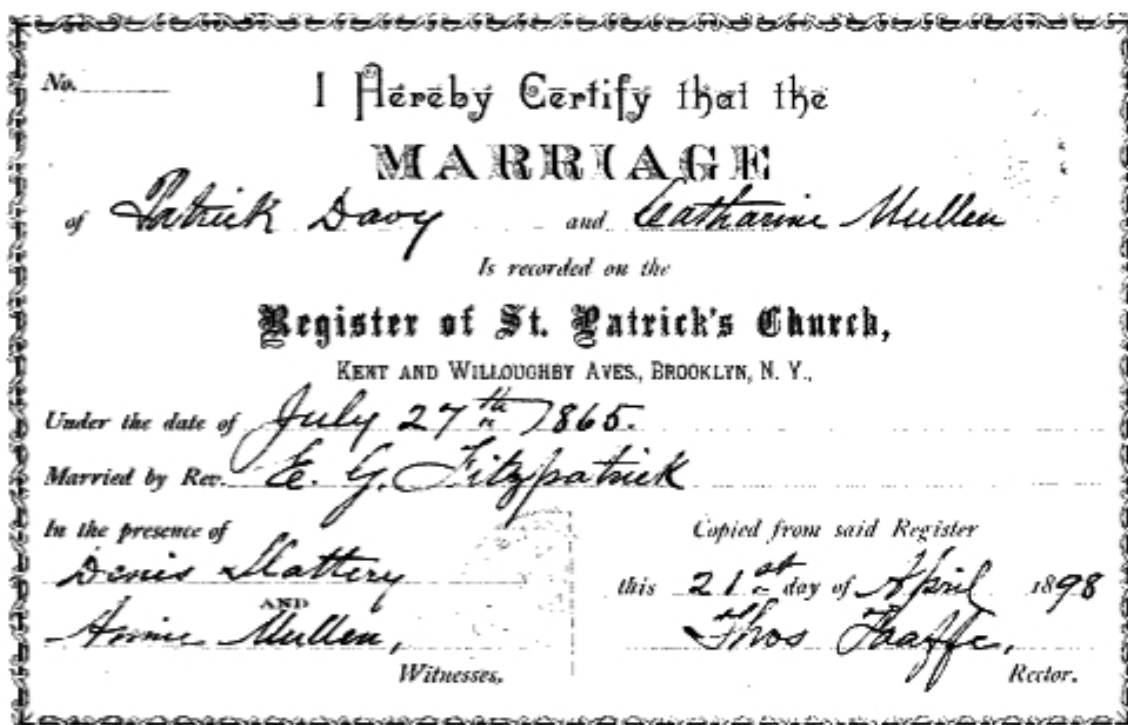 No.
I Hereby Certify that the
MARRIAGE
of Patrick Davy and Catharine Mullen
Is recorded on the
Register of St. Patrick's Church,
KENT AND WILLOUGHBY AVES., BROOKLYN, N. Y.,
Under the date of July 27th 1865.
Married by Rev. E. G. Fitzpatrick
In the presence of
Denis Slattery
AND
Annie Mullen,
Witnesses.
Copied from said Register
this 21st day of April 1898
Thos Taaffe,
Rector.